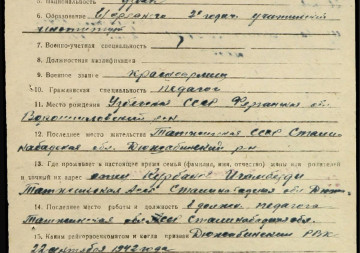 6. Образование Ферганск 2х годич. учительский
институт
7. Военно-учетная специальность
8. Должностная квалификация
9. Военное звание Красноармеец
10. Гражданская специальность педагог
11. Место рождения Узбекская ССР Ферганская об.
Ворошиловский р-н
12. Последнее место жительства Таджикская ССР Сталин-
абадская обл. Дюшамбинский р-н
13. Где проживает в настоящее время семья (фамилия, имя, отчество) жены или родителей
и точный их адрес отец Курбанов
Таджикская ССР Сталинабадская обл.
14. Последнее место работы и должность в должн. педагога
ССР Сталинабадская обл.
15. Каким райгорвоенкоматом и когда призван РВК
22 1942 года